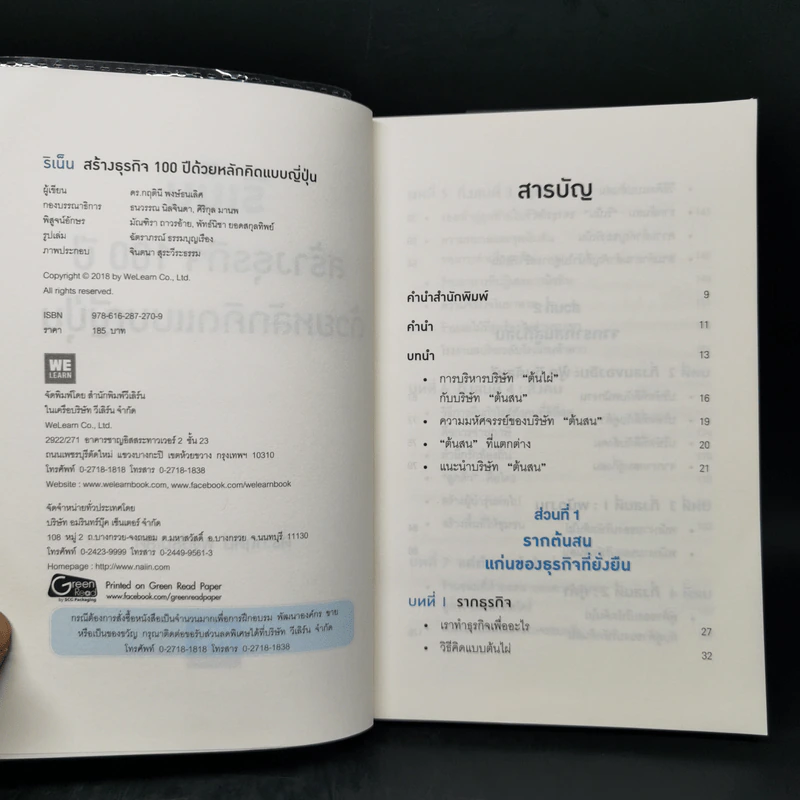 ริเน็น สร้างธุรกิจ 100 ปีด้วยหลักคิดแบบญี่ปุ่น
ผู้เขียน ดร.กฤตินี พงษ์ธนเลิศ
กองบรรณาธิการ ธนวรรณ นิลจินดา, ศิริกุล มานพ
พิสูจน์อักษร มัณฑิรา ถาวรอ้าย, พัทธ์นิชา ยอดสกุลทิพย์
รูปเล่ม ฉัตราภรณ์ ธรรมบุญเรือง
ภาพประกอบ จินตนา สุระวีระธรรม
Copyright © 2018 by WeLearn Co., Ltd.
All rights reserved.
ISBN 978-616-287-270-9
ราคา 185 บาท
WE
LEARN
จัดพิมพ์โดย สำนักพิมพ์วีเลิร์น
ในเครือบริษัท วีเลิร์น จำกัด
WeLearn Co., Ltd.
2922/271 อาคารชาญอิสสระทาวเวอร์ 2 ชั้น 23
ถนนเพชรบุรีตัดใหม่ แขวงบางกะปิ เขตห้วยขวาง กรุงเทพฯ 10310
โทรศัพท์ 0-2718-1818 โทรสาร 0-2718-1838
Website : www.welearnbook.com, www.facebook.com/welearnbook
จัดจำหน่ายทั่วประเทศโดย
บริษัท อมรินทร์บุ๊ค เซ็นเตอร์ จำกัด
108 หมู่ 2 ถ.บางกรวย-จงถนอม ต.มหาสวัสดิ์ อ.บางกรวย จ.นนทบุรี 11130
โทรศัพท์ 0-2423-9999 โทรสาร 0-2449-9561-3
Homepage : http://www.naiin.com
Green
Read
by SCG Packaging
Printed on Green Read Paper
www.facebook.com/greenreadpaper
กรณีต้องการสั่งซื้อหนังสือเป็นจำนวนมากเพื่อการฝึกอบรม พัฒนาองค์กร ขาย
หรือเป็นของขวัญ กรุณาติดต่อขอรับส่วนลดพิเศษได้ที่บริษัท วีเลิร์น จำกัด
โทรศัพท์ 0-2718-1818 โทรสาร 0-2718-1838
สารบัญ
คำนำสำนักพิมพ์ 9
คำนำ 11
บทนำ 13
• การบริหารบริษัท “ต้นไผ่”
กับบริษัท “ต้นสน” 16
• ความมหัศจรรย์ของบริษัท “ต้นสน” 19
• “ต้นสน” ที่แตกต่าง 20
• แนะนำบริษัท “ต้นสน” 21
ส่วนที่ 1
รากต้นสน
แก่นของธุรกิจที่ยั่งยืน
บทที่ 1 รากธุรกิจ
• เราทำธุรกิจเพื่ออะไร 27
• วิธีคิดแบบต้นไผ่ 32